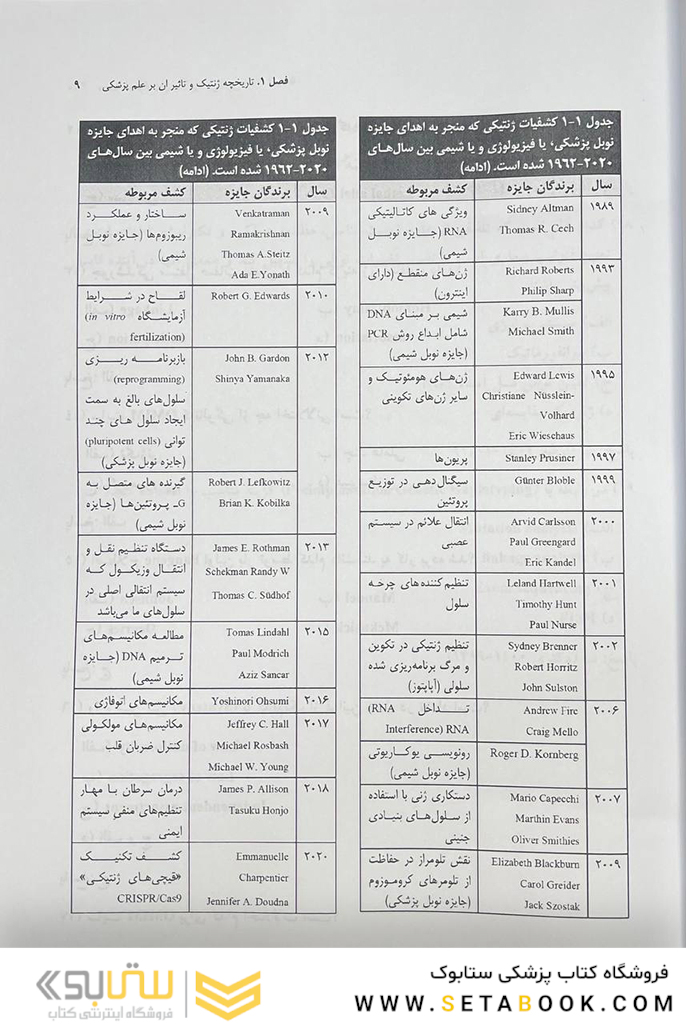 فصل ۱. تاریخچه ژنتیک و تاثیر آن بر علم پزشکی ۹
جدول ۱-۱ کشفیات ژنتیکی که منجر به اهدای جایزه
نوبل پزشکی، یا فیزیولوژی و یا شیمی بین سال‌های
۱۹۶۲-۲۰۲۰ شده است. (ادامه)
سال برندگان جایزه کشف مربوطه
۱۹۸۹ Sidney Altman ویژگی های کاتالیتیکی
Thomas R. Cech RNA (جایزه نوبل
شیمی)
۱۹۹۳ Richard Roberts ژن‌های منقطع (دارای
Philip Sharp اینترون)
Karry B. Mullis شیمی بر مبنای DNA
Michael Smith شامل ابداع روش PCR
(جایزه نوبل شیمی)
۱۹۹۵ Edward Lewis ژن‌های هومئوتیک و
Christiane Nüsslein- سایر ژن‌های تکوینی
Volhard
Eric Wieschaus
۱۹۹۷ Stanley Prusiner پریون‌ها
۱۹۹۹ Günter Bloble سیگنال‌دهی در توزیع
پروتئین
۲۰۰۰ Arvid Carlsson انتقال علائم در سیستم
Paul Greengard عصبی
Eric Kandel
۲۰۰۱ Leland Hartwell تنظیم کننده‌های چرخه
Timothy Hunt سلول
Paul Nurse
۲۰۰۲ Sydney Brenner تنظیم ژنتیکی در تکوین
Robert Horritz و مرگ برنامه‌ریزی شده
John Sulston سلولی (آپاپتوز)
۲۰۰۶ Andrew Fire تداخل RNA (RNA
Craig Mello Interference)
Roger D. Kornberg رونویسی یوکاریوتی
(جایزه نوبل شیمی)
۲۰۰۷ Mario Capecchi دستکاری ژنی با استفاده
Marthin Evans از سلول‌های بنیادی
Oliver Smithies جنینی
۲۰۰۹ Elizabeth Blackburn نقش تلومراز در حفاظت
Carol Greider از تلومرهای کروموزوم
Jack Szostak (جایزه نوبل پزشکی)
جدول ۱-۱ کشفیات ژنتیکی که منجر به اهدای جایزه
نوبل پزشکی، یا فیزیولوژی و یا شیمی بین سال‌های
۱۹۶۲-۲۰۲۰ شده است. (ادامه)
سال برندگان جایزه کشف مربوطه
۲۰۰۹ Venkatraman ساختار و عملکرد
Ramakrishnan ریبوزوم‌ها (جایزه نوبل
Thomas A.Steitz شیمی)
Ada E.Yonath
۲۰۱۰ Robert G. Edwards لقاح در شرایط
آزمایشگاه (in vitro
fertilization)
۲۰۱۲ John B. Gardon بازبرنامه ریزی
Shinya Yamanaka (reprogramming)
سلول‌های بالغ به سمت
ایجاد سلول های چند
توانی (pluripotent cells)
(جایزه نوبل پزشکی)
Robert J. Lefkowitz گیرنده های متصل به
Brian K. Kobilka G- پروتئین‌ها (جایزه
نوبل شیمی)
۲۰۱۳ James E. Rothman دستگاه تنظیم نقل و
Schekman Randy W انتقال وزیکول که
Thomas C. Südhof سیستم انتقالی اصلی در
سلول‌های ما می‌باشد
۲۰۱۵ Tomas Lindahl مطالعه مکانیسم‌های
Paul Modrich ترمیم DNA (جایزه
Aziz Sancar نوبل شیمی)
۲۰۱۶ Yoshinori Ohsumi مکانیسم‌های اتوفاژی
۲۰۱۷ Jeffrey C. Hall مکانیسم‌های مولکولی
Michael Rosbash کنترل ضربان قلب
Michael W. Young
۲۰۱۸ James P. Allison درمان سرطان با مهار
Tasuku Honjo تنظیم‌های منفی سیستم
ایمنی
۲۰۲۰ Emmanuelle کشف تکنیک
Charpentier «قیچی‌های ژنتیکی»
Jennifer A. Doudna CRISPR/Cas9
فروشگاه کتاب پزشکی ستابوک
WWW.SETABOOK.COM
ستابوک
فروشگاه اینترنتی کتاب